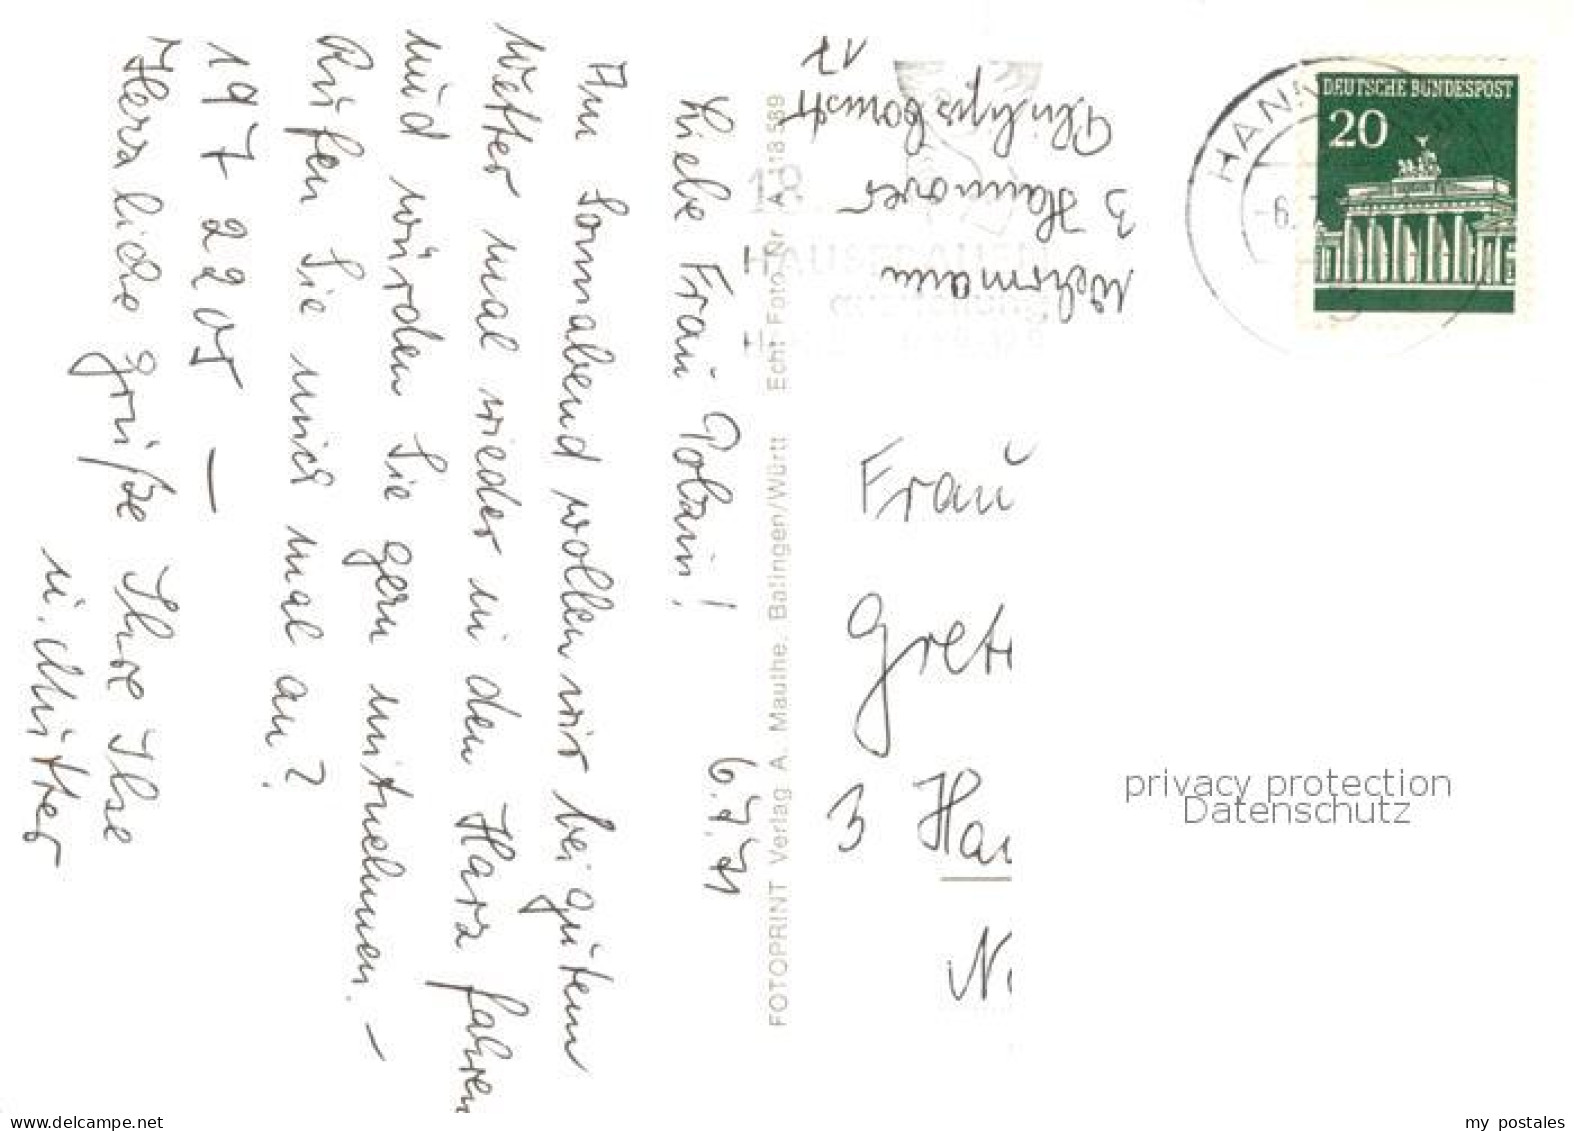 6.7.71
Liebe Frau Polain!
Am Sonnabend wollen wir bei gutem
Wetter mal wieder in den Harz fahren
und würden Sie gern mitnehmen. –
Rufen Sie mich mal an?
197 2205 –
Herzliche Grüße Ihre Ilse
u. Mutter
FOTOPRINT Verlag A. Mauthe, Balingen/Württ Echt Foto Nr A 118 589
3 Hannover
17
HANN
-6.
3
DEUTSCHE BUNDESPOST
20
HAUSFRAUEN
Frau
Gret
3 Ha
N
privacy protection
Datenschutz
www.delcampe.net
my postales